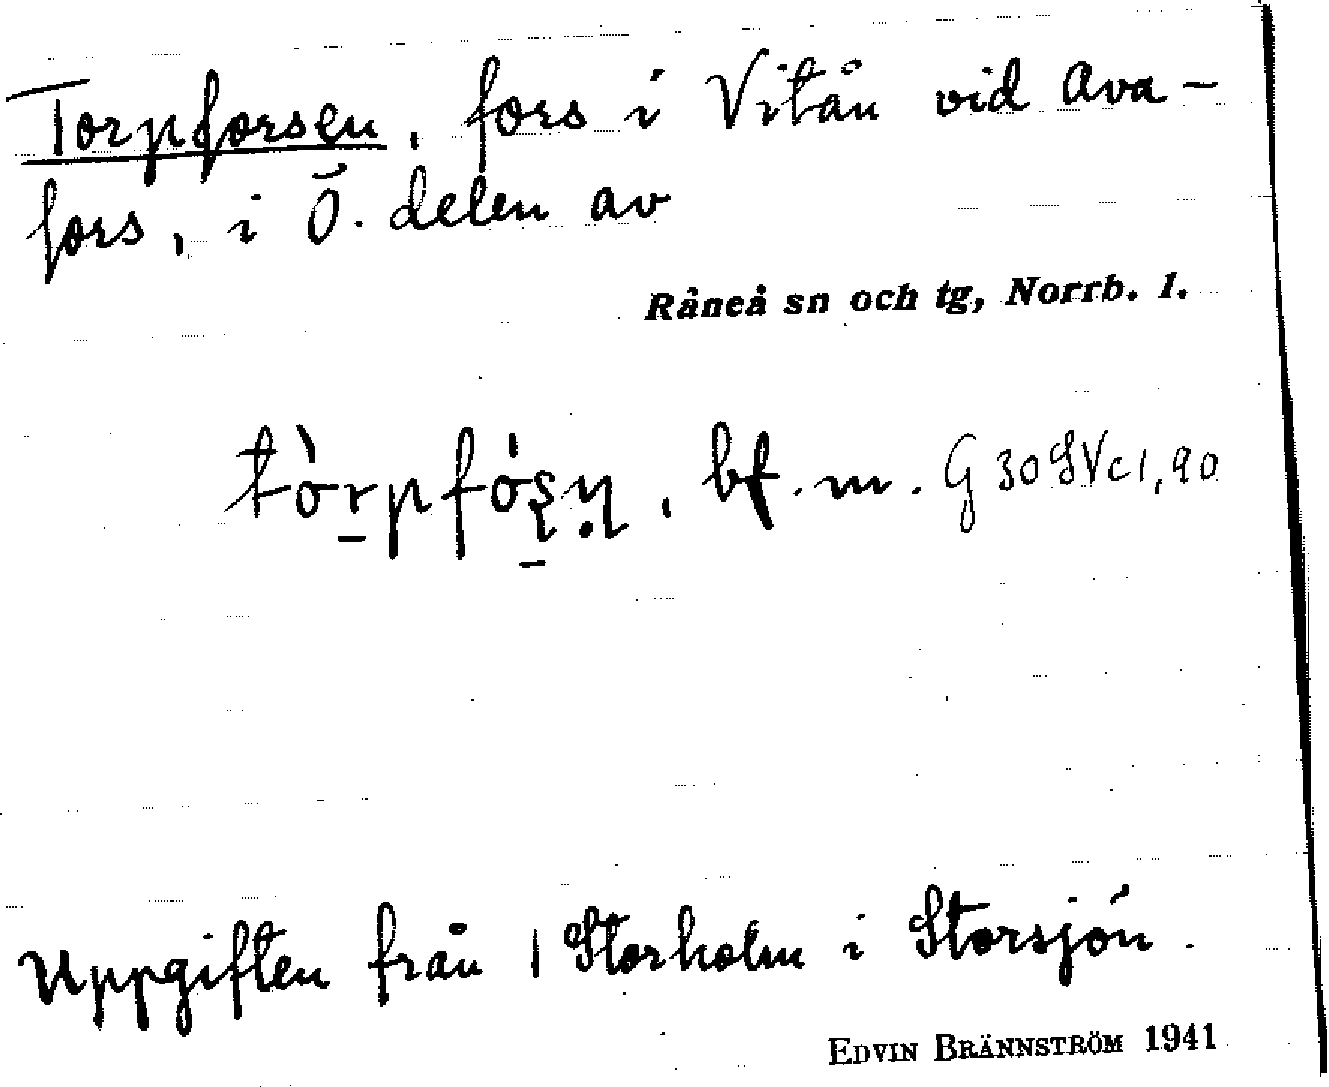 Torpforsen, fors i Vitån vid Ava-
fors, i Ö. delen av
Råneå sn och tg, Norrb. l.
tòr̲pfós̲n̥, bf. m. G 30 SV c 1, 90
Uppgiften från 1 Storholm i Storsjön.
EDVIN BRÄNNSTRÖM 1941